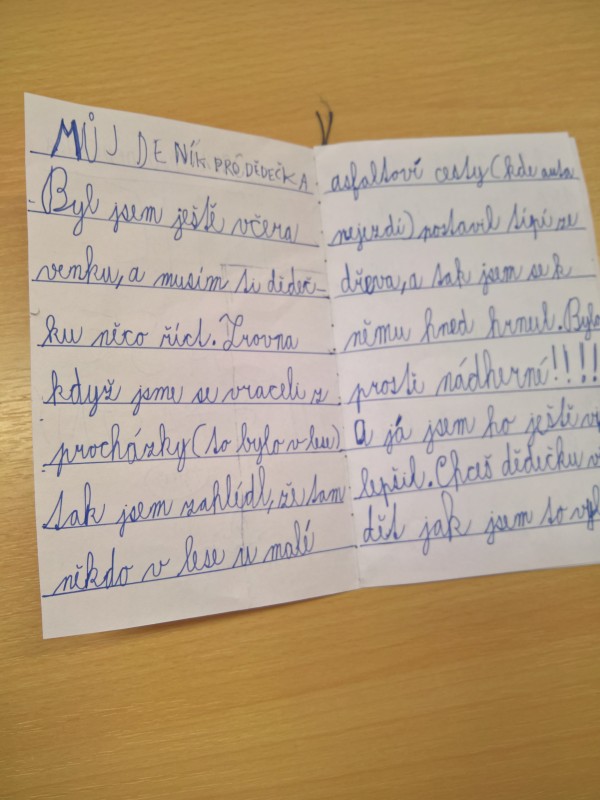 MŮJ DENÍK PRO DĚDEČKA
Byl jsem ještě včera
venku, a musím ti děděč-
ku něco říct. Zrovna
když jsme se vraceli z
procházky (to bylo v lese)
tak jsem zahlédl, že tam
někdo v lese u malé
asfaltové cesty (kde auta
nejezdí) postavil típí ze
dřeva, a tak jsem se k
němu hned hrnul. Bylo
prostě nádherné!!!!
A já jsem ho ještě vy
lepšil. Chceš dědečku vi
dět jak jsem to vyl